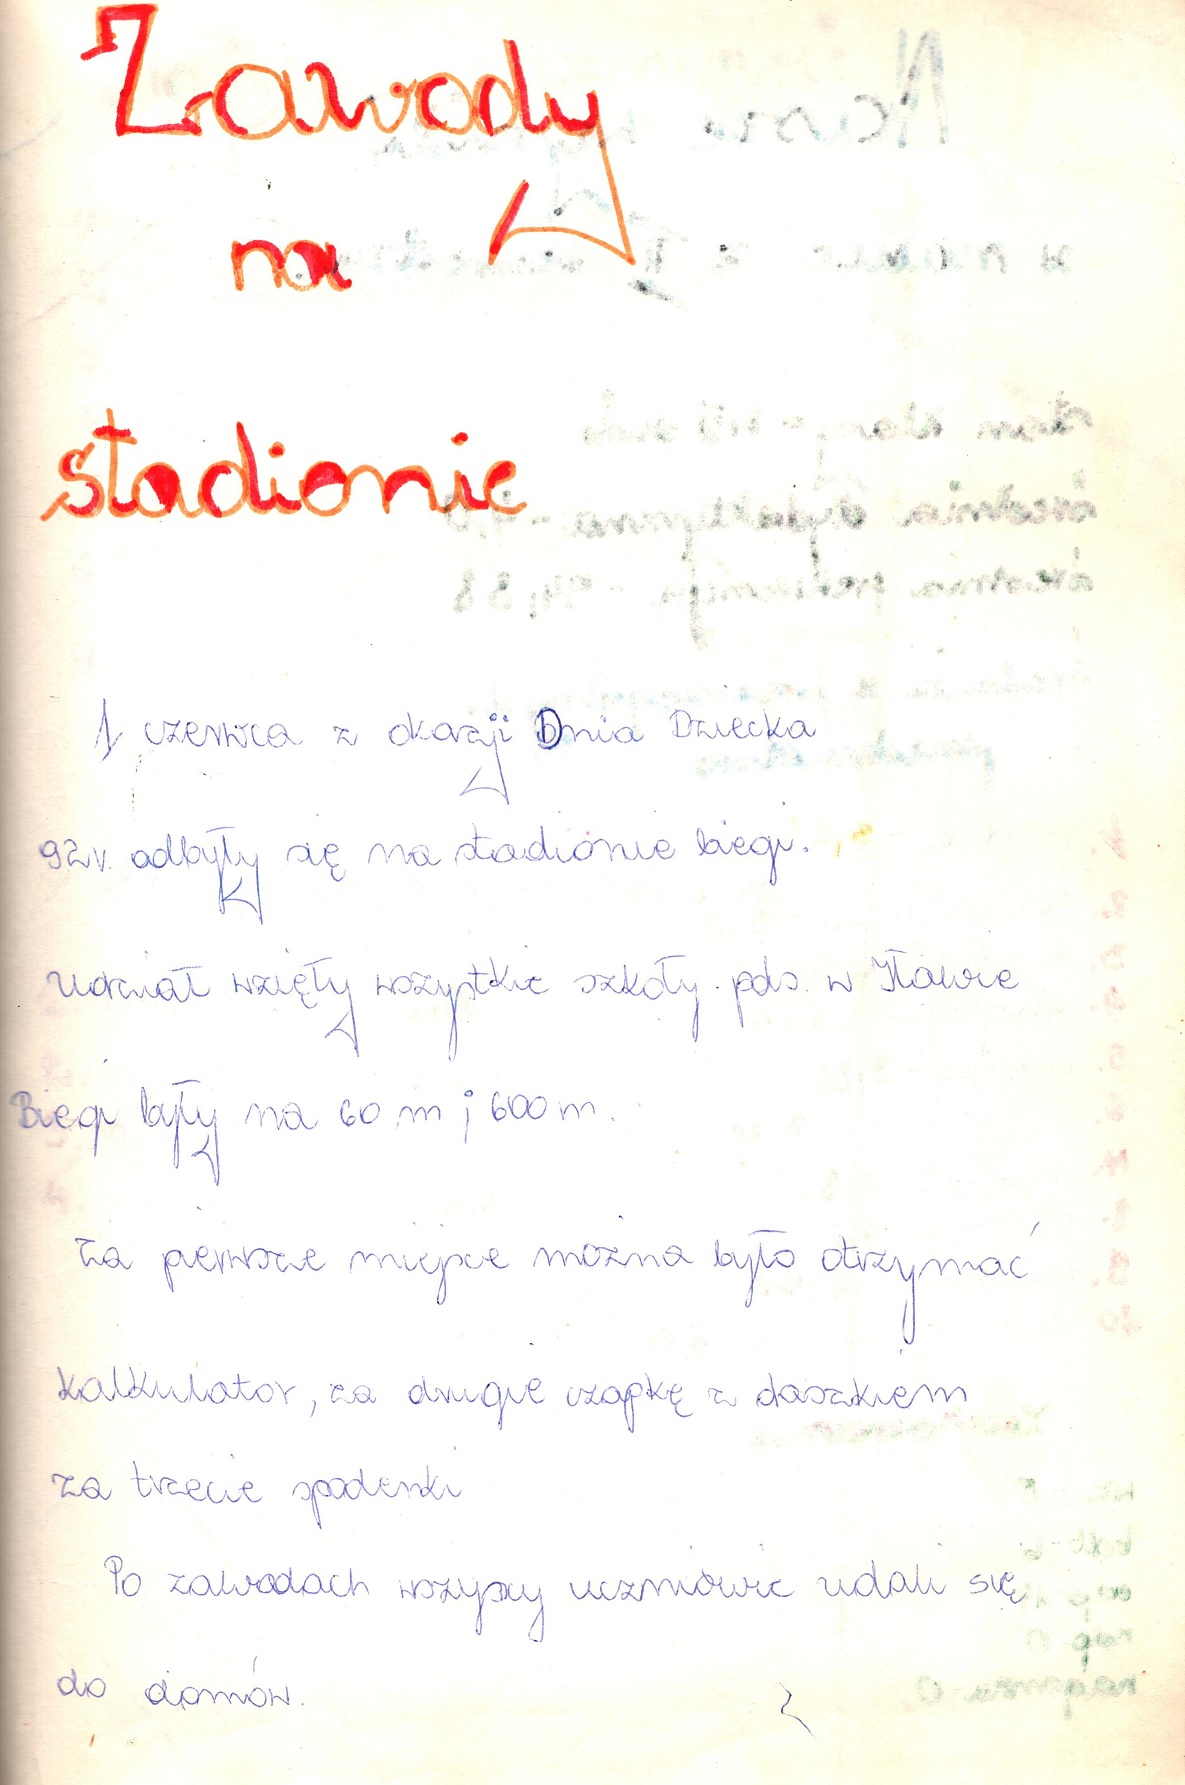 Zawody
na
stadionie
1 czerwca z okazji Dnia Dziecka
92r. odbyły się na stadionie biegi.
Udział wzięły wszystkie szkoły pds. w Iławie
Biegi były na 60 m i 600 m.
Za pierwsze miejsce można było otrzymać
kalkulator, za drugie czapkę z daszkiem
za trzecie spodenki
Po zawodach wszyscy uczniowie udali się
do domów.